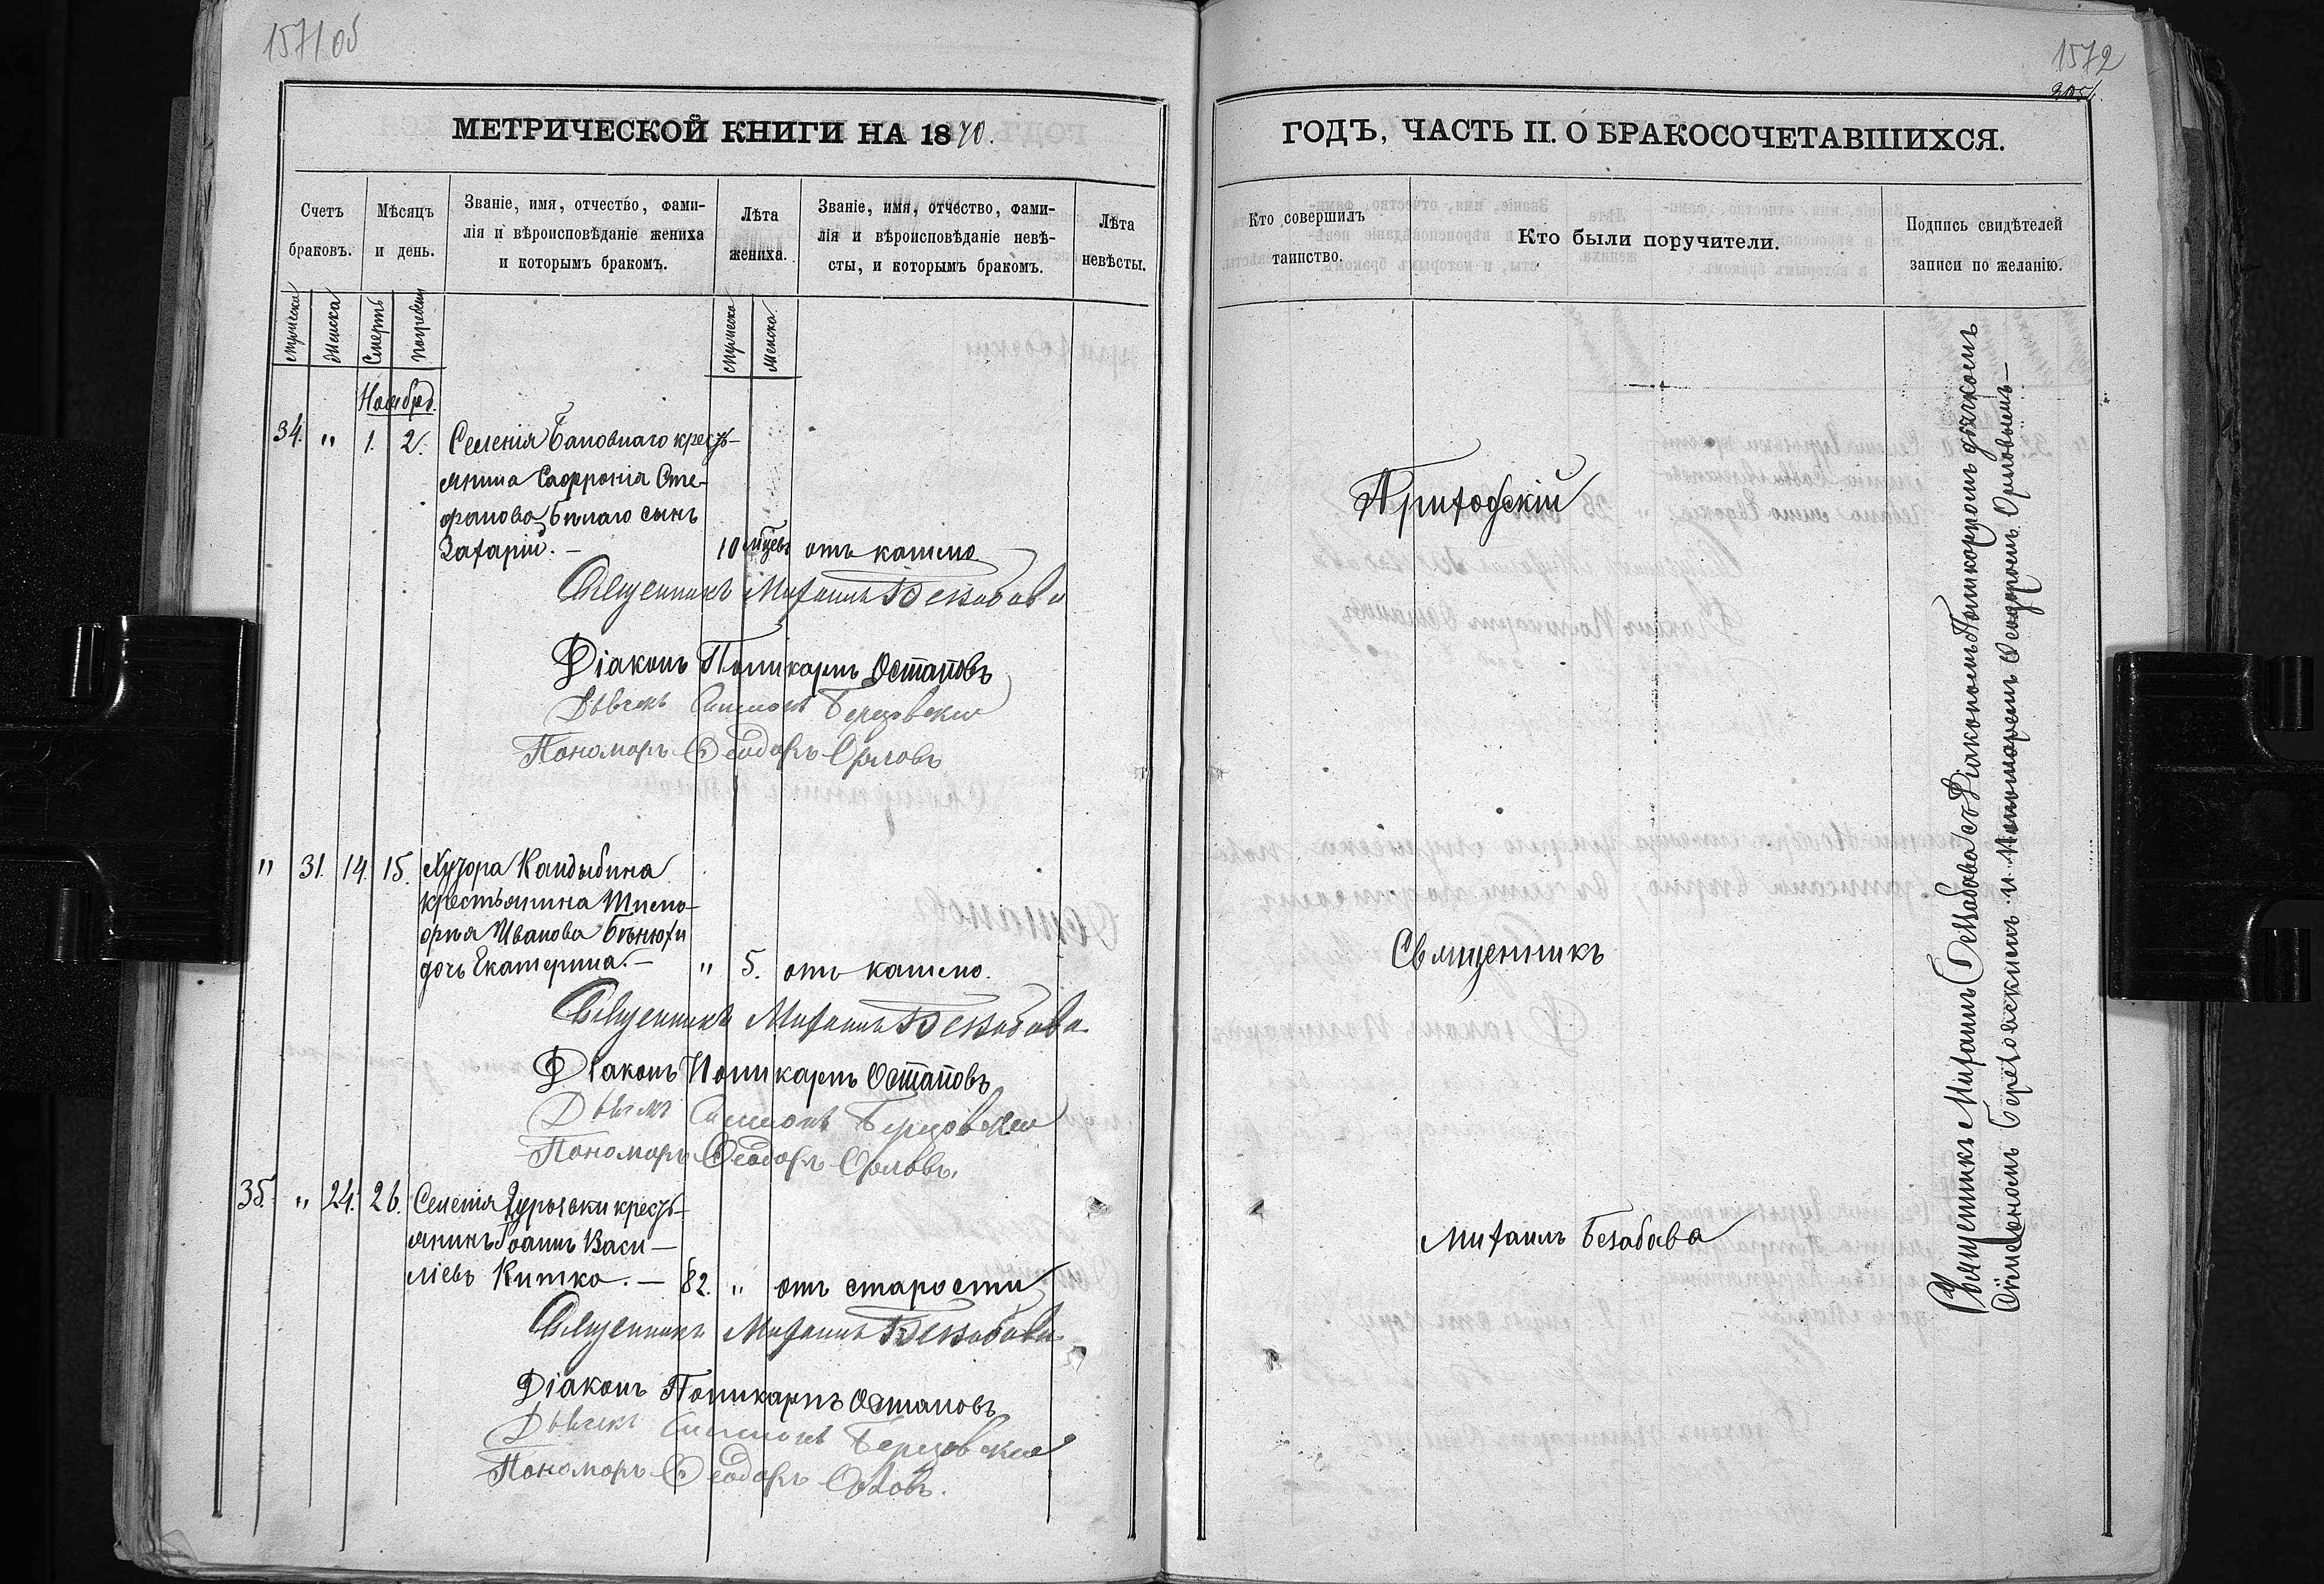 1571 об
МЕТРИЧЕСКОЙ КНИГИ НА 1870.
Счетъ
браковъ.
Мѣсяцъ
и день.
Званіе, имя, отчество, фами-
лія и вѣроисповѣданіе жениха
и которымъ бракомъ.
Лѣта
жениха.
Званіе, имя, отчество, фами-
лія и вѣроисповѣданіе невѣ-
сты, и которымъ бракомъ.
Лѣта
невѣсты.
Мужеска
Женска
Смерть
Погребен
Мужеска
Женска
Ноября.
34. " 1. 2. Селенія Бановаго кресть-
янина Софронія Сте-
фанова Бѣлаго сынъ
Захарій. — 10 мѣсяцевъ отъ кашлю
Священникъ Михаилъ Безабава
Діаконъ Поликарпъ Остаповъ
Дьячекъ Симеонъ Березовскій
Пономарь Ѳеодоръ Орловъ
" 31. 14. 15. Хутора Кандыбина
крестьянина Тимо-
фея Иванова
дочь Екатерина. — " 5. отъ кашлю.
Священникъ Михаилъ Безабава
Діаконъ Поликарпъ Остаповъ
Дьячекъ Симеонъ Березовскій
Пономарь Ѳеодоръ Орловъ.
35. " 24. 26. Селенія Гурьевки кресть-
янинъ Іоаннъ Васи-
ліевъ Китко. — 82. " отъ старости
Священникъ Михаилъ Безабава
Діаконъ Поликарпъ Остаповъ
Дьячекъ Симеонъ Березовскій
Пономарь Ѳеодоръ Орловъ.
1572
ГОДЪ, ЧАСТЬ II. О БРАКОСОЧЕТАВШИХСЯ.
Кто совершилъ
таинство.
Кто были поручители.
Подпись свидѣтелей
записи по желанію.
Приходскій
Священникъ
Михаилъ Безабава
Священникъ Михаилъ Безабава съ Діакономъ Поликарпомъ дячкомъ
Сѵмеономъ Березовскимъ и Пономаремъ Ѳеодоромъ Орловымъ—